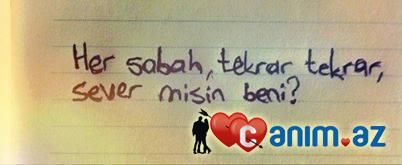 Her sabah, tekrar tekrar,
sever misin beni?
Canım.az